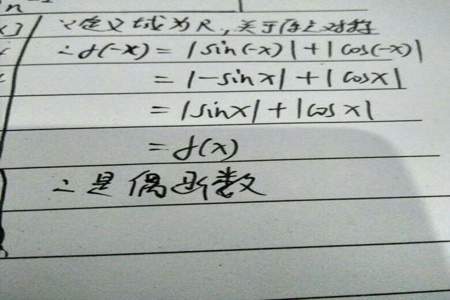 ∵定义域为R,关于原点对称
∴f(-x)=|sin(-x)|+|cos(-x)|
=|-sinx|+|cosx|
=|sinx|+|cosx|
=f(x)
∴是偶函数